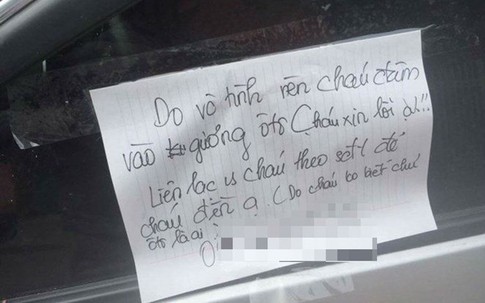 Do vô tình nên cháu đâm
vào gương ôtô (Cháu xin lỗi ạ!!
Liên lạc vs cháu theo sđt để
cháu đền ạ. (Do cháu ko biết chủ
ôtô là ai
0